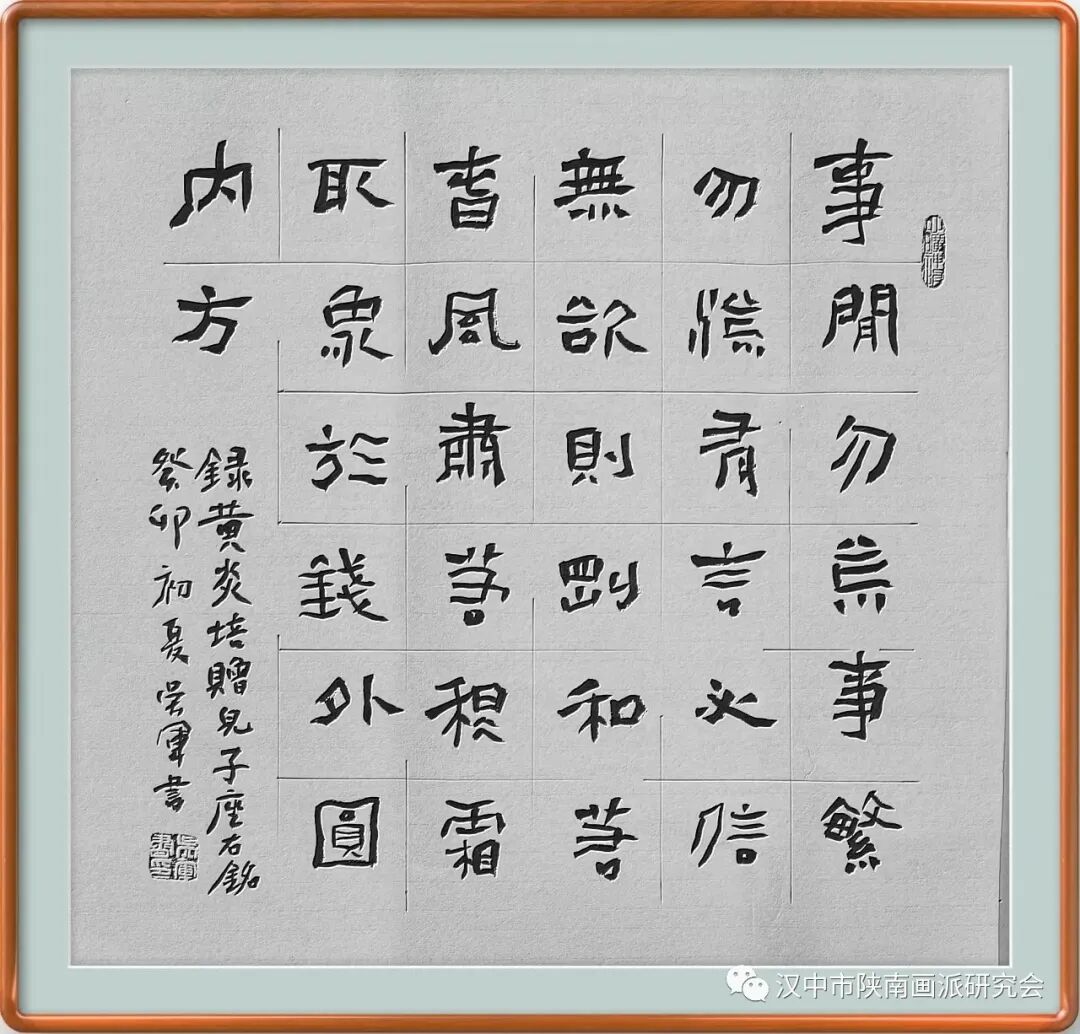 事閒勿荒事繁
勿慌有言必信
無欲則剛和若
春風肅若秋霜
取象於錢外圓
內方
録黄炎培贈兒子座右銘
癸卯初夏吴軍書
汉中市陕南画派研究会